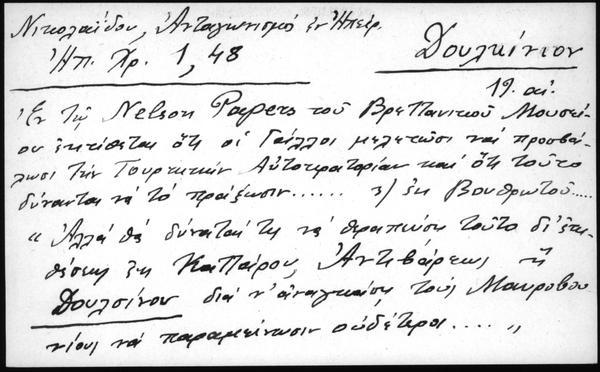 Νικολαΐδου, Ἀνταγωνισμός ἐν Ἠπείρ.
Ἠπ. Χρ. 1, 48
Δουλκίνιον
19. αἰ.
Ἐν τῇ Nelson Papers τοῦ Βρεττανικοῦ Μουσεί-
ου ἐκτίθεται ὅτι οἱ Γάλλοι μελετῶσι νά προσβά-
λωσι τήν Τουρκικήν Αὐτοκρατορίαν καί ὅτι τοῦτο
δύνανται νά τό πράξωσιν...... 3) ἐκ Βουθρωτοῦ.....
" Ἀλλά θά δύναταί τις νά θεραπεύσῃ τοῦτο δι' ἐπι-
θέσεως ἐκ Καττάρου, Ἀντιβάρεως ἤ
Δουλσίνου διά ν' ἀναγκάσῃ τούς Μαυροβου
νίους νά παραμείνωσιν οὐδέτεροι .... "